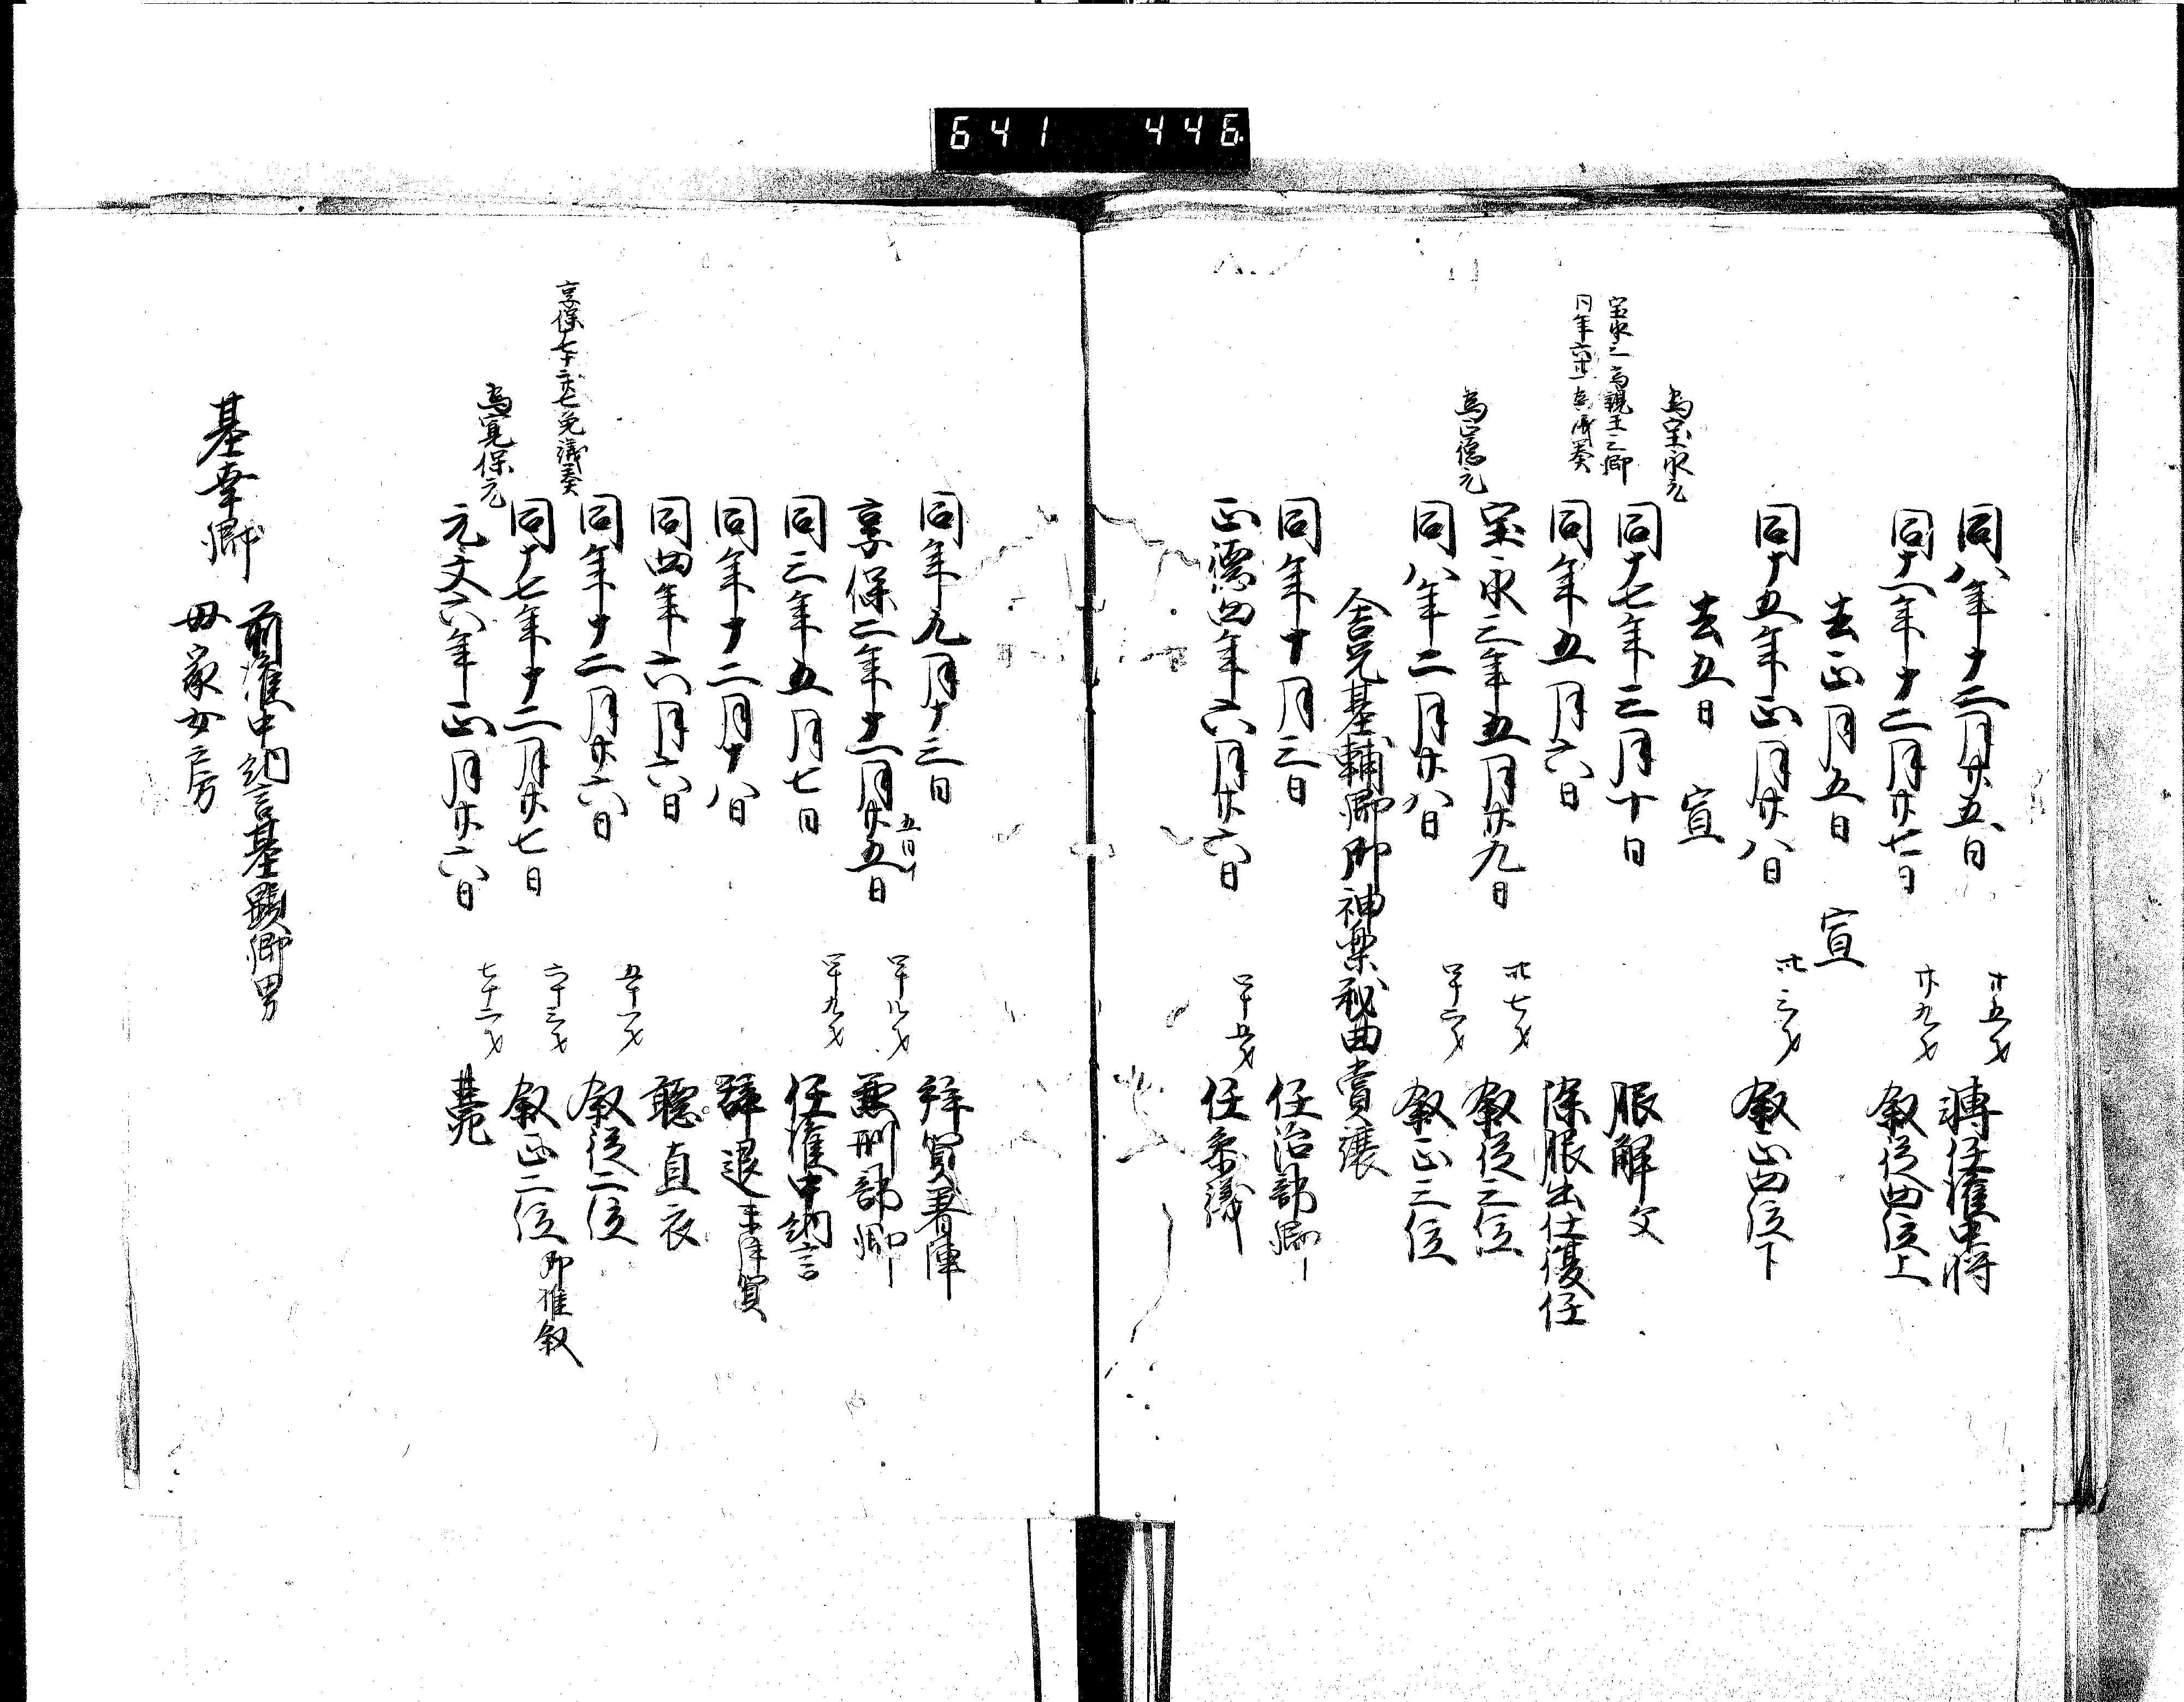 641 446
同八年十二月廿五日 廿五才 轉任権中将
同十二年十二月廿七日 廿九才 叙従四位上
去正月五日 宣
同十五年正月廿八日 卅三才 叙正四位下
去五日 宣
為宝永元
同十七年三月十日 服解父
宝永三 為親王三卿
同年五月六日 除服出仕復任
宝永三年五月廿九日 卅七才 叙従三位
同八年二月廿八日 四十二才 叙正三位
為正徳元
舎兄基輔卿御神楽秘曲賞譲
同年十月三日 任治部卿
正徳四年六月廿六日 四十五才 任参議
同年九月十三日 拝賀着陣
享保二年十一月廿五日 四十八才 兼刑部卿
同三年五月七日 四十九才 任権中納言
同年十二月十八日 辞退未拝賀
同四年六月六日 聴直衣
同年十二月廿六日 五十才 叙従二位
免議奏
同十七年十二月廿七日 六十三才 叙正二位 御推叙
元文六年正月廿六日 七十二才 薨
為寛保元
基幸卿 前権中納言基顕卿男
母家女房